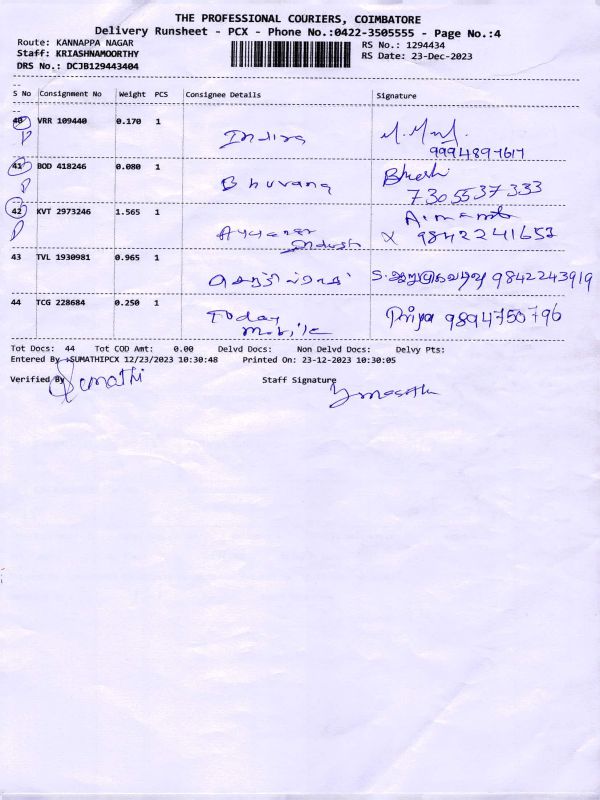 THE PROFESSIONAL COURIERS, COIMBATORE
Delivery Runsheet - PCX - Phone No.:0422-3505555 - Page No.:4
Route: KANNAPPA NAGAR
Staff: KRIASHNAMOORTHY
DRS No.: DCJB129443404
RS No.: 1294434
RS Date: 23-Dec-2023
S No Consignment No Weight PCS Consignee Details Signature
40 VRR 109440 0.170 1 Indira
9994897617
41 BOD 418246 0.080 1 Bhuvana
7305537333
42 KVT 2973246 1.565 1
9842241652
43 TVL 1930981 0.965 1 9842243919
44 TCG 228684 0.250 1 Today Mobile Priya 9894750796
Tot Docs: 44 Tot COD Amt: 0.00 Delvd Docs: Non Delvd Docs: Delvy Pts:
Entered By :SUMATHIPCX 12/23/2023 10:30:48 Printed On: 23-12-2023 10:30:05
Verified By Sumathi Staff Signature